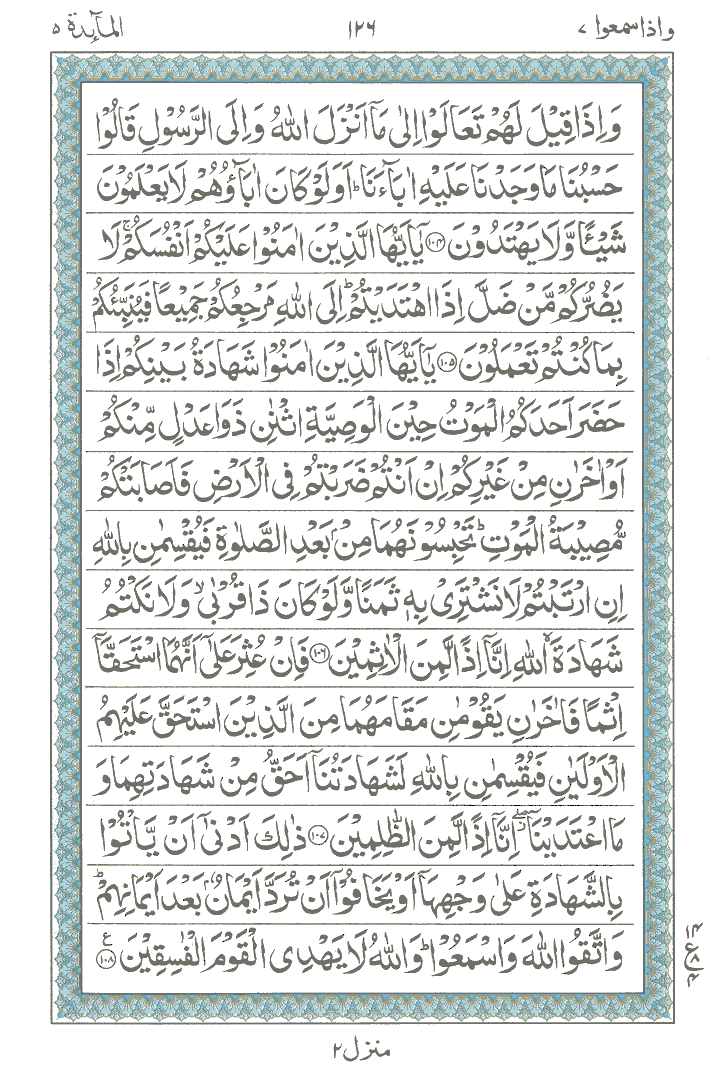 واذاسمعوا ٧ ١٢٦ المآىِٕدة ٥
وَاِذَا قِيْلَ لَهُمْ تَعَالَوْا اِلٰى مَاۤ اَنْزَلَ اللّٰهُ وَاِلَى الرَّسُوْلِ قَالُوْا
حَسْبُنَا مَا وَجَدْنَا عَلَيْهِ اٰبَآءَنَا ؕ اَوَلَوْ كَانَ اٰبَآؤُهُمْ لَا يَعْلَمُوْنَ
شَيْـًٔا وَّلَا يَهْتَدُوْنَ ﴿١٠٤﴾ يٰۤاَيُّهَا الَّذِيْنَ اٰمَنُوْا عَلَيْكُمْ اَنْفُسَكُمْ ۚ لَا
يَضُرُّكُمْ مَّنْ ضَلَّ اِذَا اهْتَدَيْتُمْ ؕ اِلَى اللّٰهِ مَرْجِعُكُمْ جَمِيْعًا فَيُنَبِّئُكُمْ
بِمَا كُنْتُمْ تَعْمَلُوْنَ ﴿١٠٥﴾ يٰۤاَيُّهَا الَّذِيْنَ اٰمَنُوْا شَهَادَةُ بَيْنِكُمْ اِذَا
حَضَرَ اَحَدَكُمُ الْمَوْتُ حِيْنَ الْوَصِيَّةِ اثْنٰنِ ذَوَا عَدْلٍ مِّنْكُمْ
اَوْ اٰخَرٰنِ مِنْ غَيْرِكُمْ اِنْ اَنْتُمْ ضَرَبْتُمْ فِى الْاَرْضِ فَاَصَابَتْكُمْ
مُّصِيْبَةُ الْمَوْتِ ؕ تَحْبِسُوْنَهُمَا مِنْۢ بَعْدِ الصَّلٰوةِ فَيُقْسِمٰنِ بِاللّٰهِ
اِنِ ارْتَبْتُمْ لَا نَشْتَرِىْ بِهٖ ثَمَنًا وَّلَوْ كَانَ ذَا قُرْبٰى ۙ وَلَا نَكْتُمُ
شَهَادَةَ ۙ اللّٰهِ اِنَّاۤ اِذًا لَّمِنَ الْاٰثِمِيْنَ ﴿١٠٦﴾ فَاِنْ عُثِرَ عَلٰۤى اَنَّهُمَا اسْتَحَقَّاۤ
اِثْمًا فَاٰخَرٰنِ يَقُوْمٰنِ مَقَامَهُمَا مِنَ الَّذِيْنَ اسْتَحَقَّ عَلَيْهِمُ
الْاَوْلَيٰنِ فَيُقْسِمٰنِ بِاللّٰهِ لَشَهَادَتُنَاۤ اَحَقُّ مِنْ شَهَادَتِهِمَا وَ
مَا اعْتَدَيْنَاۤ ۖ اِنَّاۤ اِذًا لَّمِنَ الظّٰلِمِيْنَ ﴿١٠٧﴾ ذٰلِكَ اَدْنٰۤى اَنْ يَّاْتُوْا
بِالشَّهَادَةِ عَلٰى وَجْهِهَاۤ اَوْ يَخَافُوْۤا اَنْ تُرَدَّ اَيْمَانٌۢ بَعْدَ اَيْمَانِهِمْ ؕ
وَاتَّقُوا اللّٰهَ وَاسْمَعُوْا ؕ وَاللّٰهُ لَا يَهْدِى الْقَوْمَ الْفٰسِقِيْنَ ﴿١٠٨﴾ ع
منزل ٢